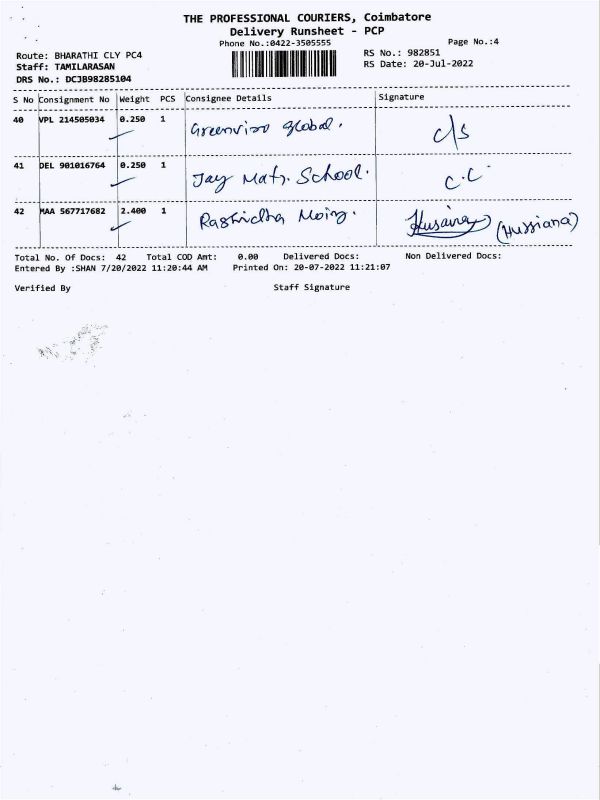 THE PROFESSIONAL COURIERS, Coimbatore
Delivery Runsheet - PCP
Phone No.:0422-3505555 Page No.:4
Route: BHARATHI CLY PC4 RS No.: 982851
Staff: TAMILARASAN RS Date: 20-Jul-2022
DRS No.: DCJB98285104
S No Consignment No Weight PCS Consignee Details Signature
40 VPL 214505034 0.250 1 Greenviro Global. c/s
41 DEL 901016764 0.250 1 Jay Matr. School. C.C
42 MAA 567717682 2.400 1 (Hussiana)
Total No. Of Docs: 42 Total COD Amt: 0.00 Delivered Docs: Non Delivered Docs:
Entered By :SHAN 7/20/2022 11:20:44 AM Printed On: 20-07-2022 11:21:07
Verified By Staff Signature